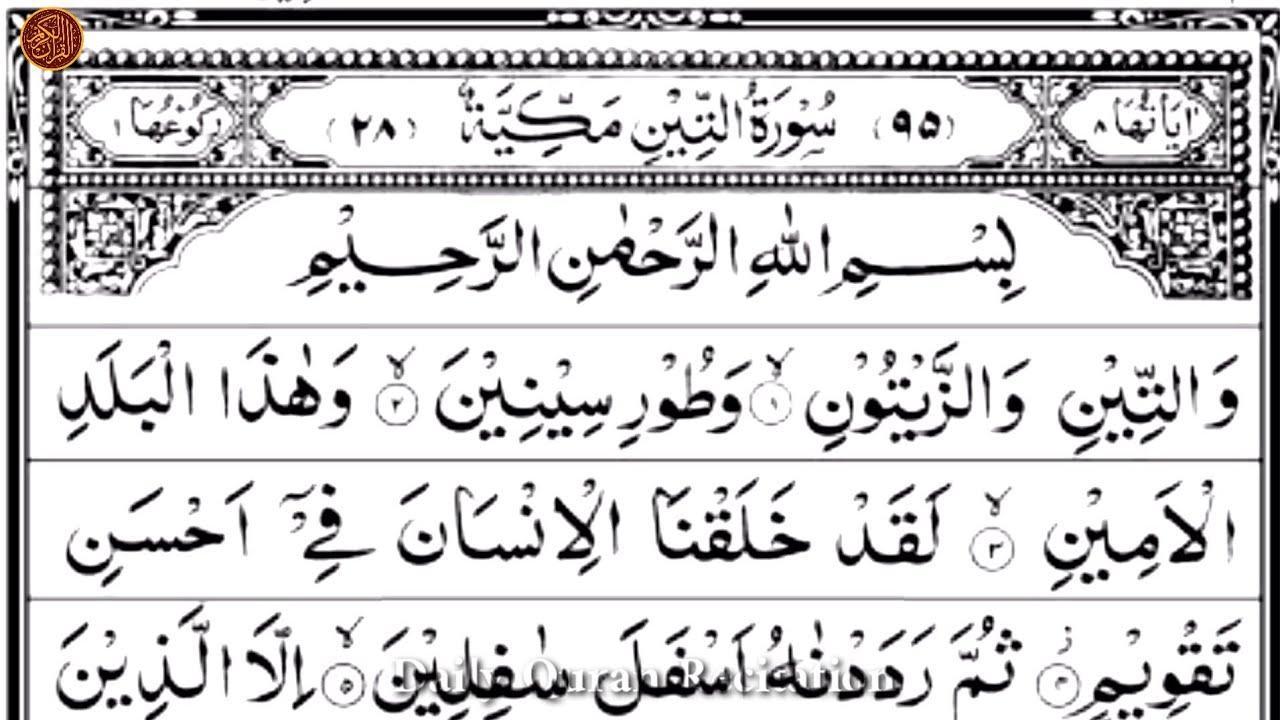 القرآن الكريم
اٰيَاتُهَا ٨ (٩٥) سُوْرَةُ التِّيْنِ مَكِّيَّةٌ (٢٨) رُكُوْعُهَا ١
بِسْمِ اللّٰهِ الرَّحْمٰنِ الرَّحِيْمِ
وَالتِّيْنِ وَالزَّيْتُوْنِ ۙ﴿١﴾ وَطُوْرِ سِيْنِيْنَ ۙ﴿٢﴾ وَهٰذَا الْبَلَدِ
الْاَمِيْنِ ۙ﴿٣﴾ لَقَدْ خَلَقْنَا الْاِنْسَانَ فِيْٓ اَحْسَنِ
تَقْوِيْمٍ ۫﴿٤﴾ ثُمَّ رَدَدْنٰهُ اَسْفَلَ سٰفِلِيْنَ ۙ﴿٥﴾ اِلَّا الَّذِيْنَ
Daily Quran Recitation